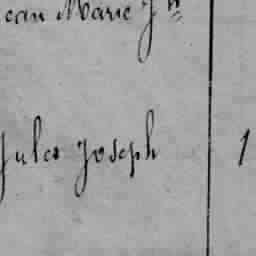 ean Marie Jh
Jules Joseph 1